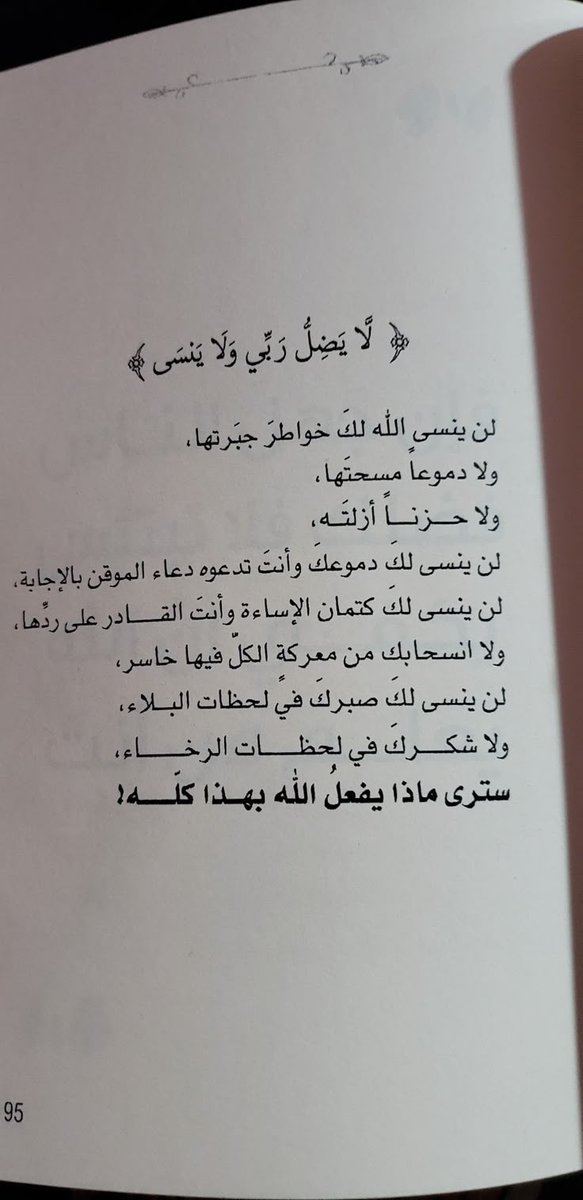 ﴿ لَّا يَضِلُّ رَبِّي وَلَا يَنسَى ﴾
لن ينسى الله لكَ خواطرَ جبَرتها،
ولا دموعاً مسحتَها،
ولا حـزنــاً أزلتَــه،
لن ينسى لكَ دموعكَ وأنتَ تدعوه دعاء الموقن بالإجابة،
لن ينسى لكَ كتمان الإساءة وأنتَ القــادر على ردِّها،
ولا انسحابك من معركةٍ الكلّ فيها خاسر،
لن ينسى لكَ صبركَ في لحظات البـلاء،
ولا شكــركَ في لحظـــات الرخــاء،
سترى ماذا يفعلُ الله بهـذا كلّـــه!
95